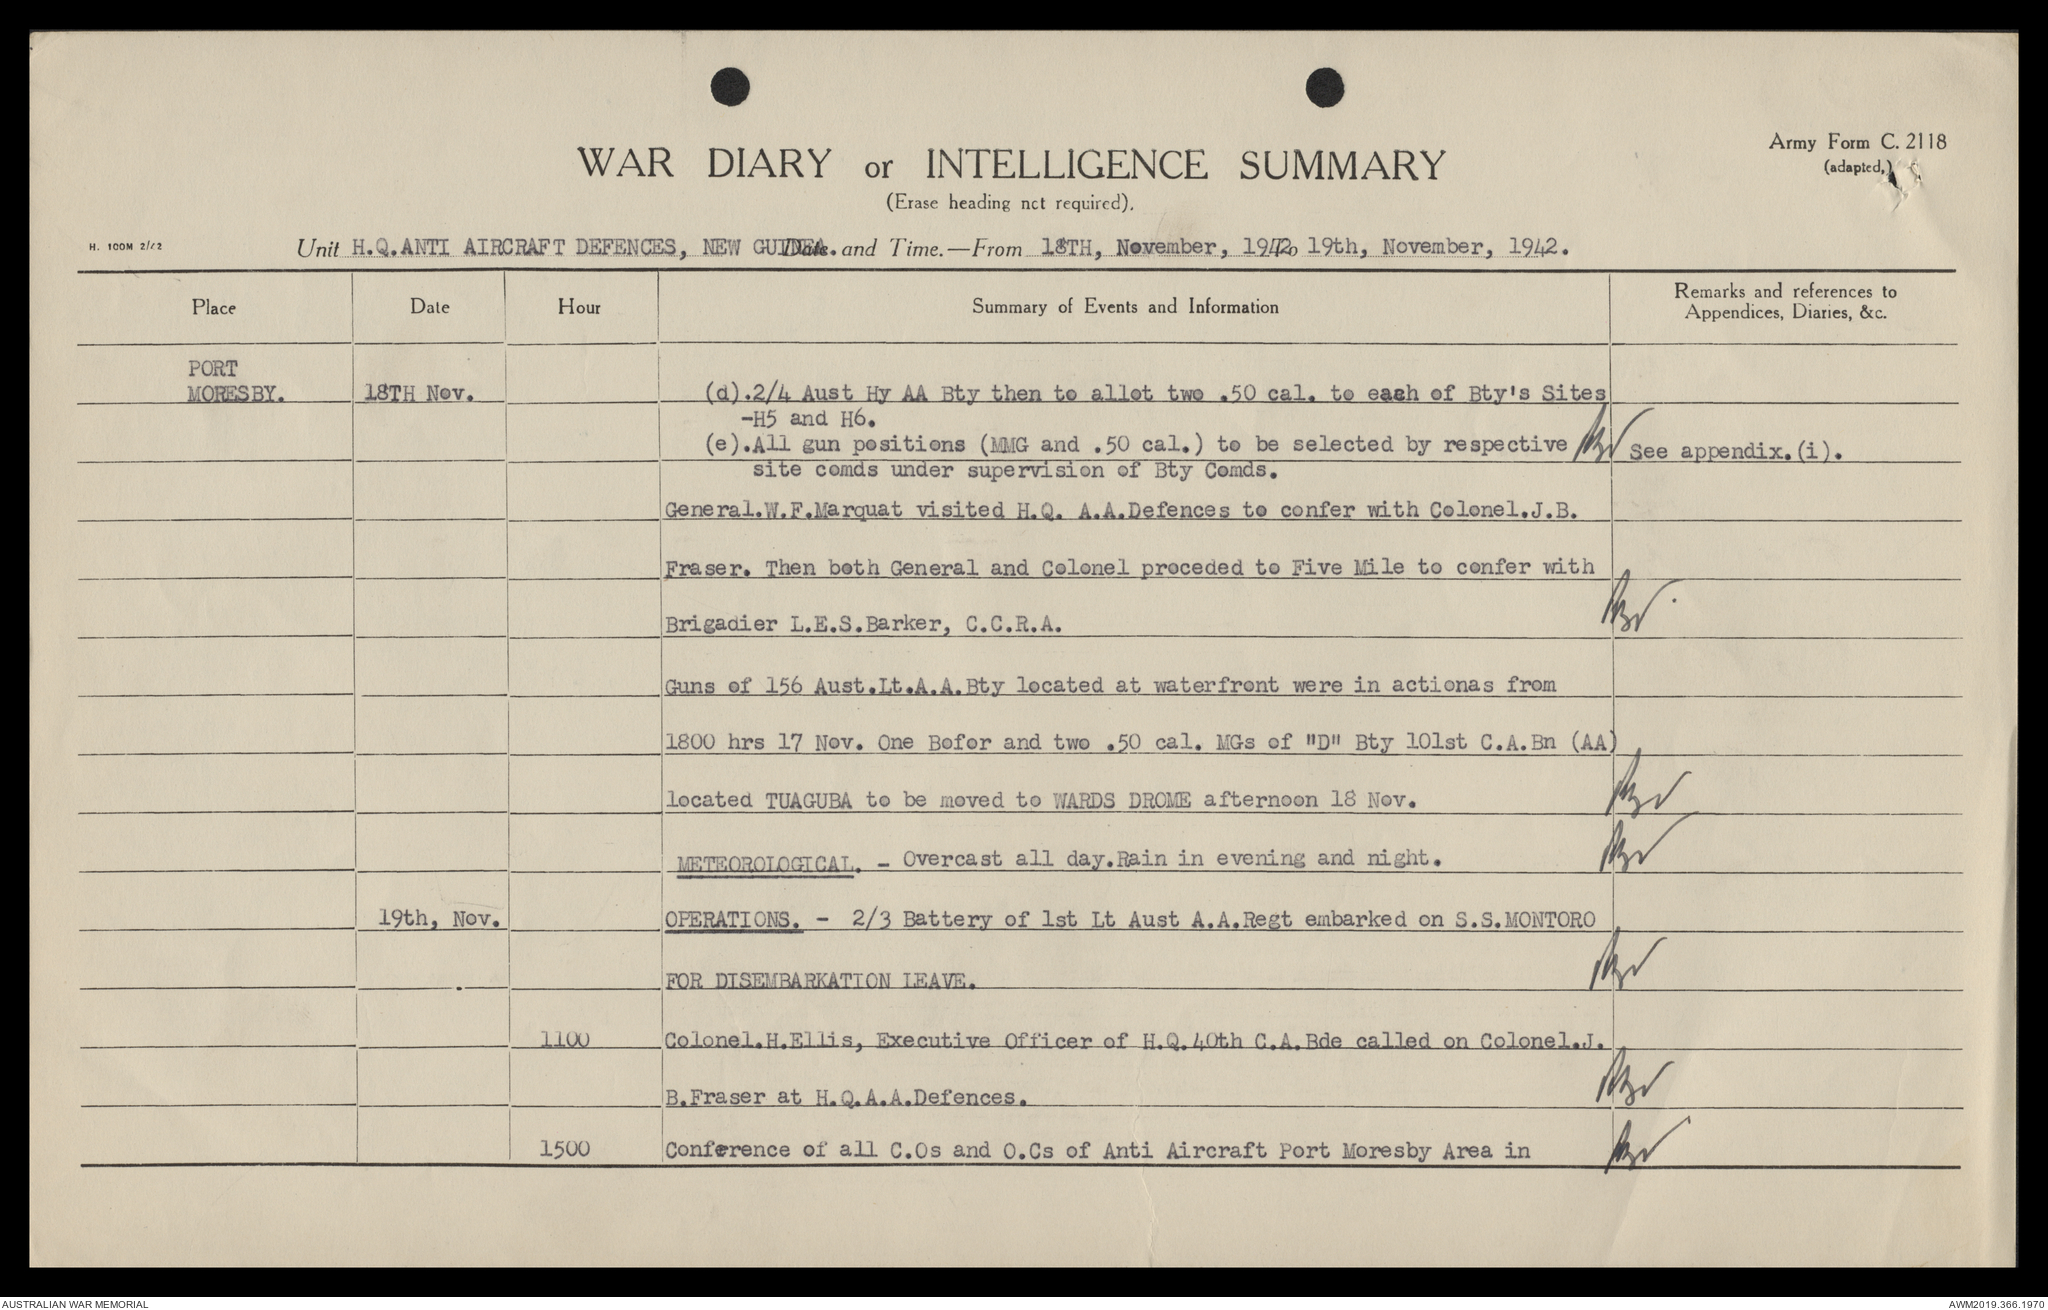 Army Form C. 2118
(adapted.)
WAR DIARY or INTELLIGENCE SUMMARY
(Erase heading not required).
H. 100M 2/42
Unit H.Q.ANTI AIRCRAFT DEFENCES, NEW GUINEA. Date and Time.—From 18TH, November, 1942 To 19th, November, 1942.
Place Date Hour Summary of Events and Information Remarks and references to
Appendices, Diaries, &c.
PORT
MORESBY. 18TH Nov. (d).2/4 Aust Hy AA Bty then to allot two .50 cal. to each of Bty's Sites
-H5 and H6.
(e).All gun positions (MMG and .50 cal.) to be selected by respective See appendix.(i).
site comds under supervision of Bty Comds.
General.W.F.Marquat visited H.Q. A.A.Defences to confer with Colonel.J.B.
Fraser. Then both General and Colonel proceded to Five Mile to confer with
Brigadier L.E.S.Barker, C.C.R.A.
Guns of 156 Aust.Lt.A.A.Bty located at waterfront were in actionas from
1800 hrs 17 Nov. One Bofor and two .50 cal. MGs of "D" Bty 101st C.A.Bn (AA)
located TUAGUBA to be moved to WARDS DROME afternoon 18 Nov.
METEOROLOGICAL. - Overcast all day.Rain in evening and night.
19th, Nov. OPERATIONS. - 2/3 Battery of 1st Lt Aust A.A.Regt embarked on S.S.MONTORO
FOR DISEMBARKATION LEAVE.
1100 Colonel.H.Ellis, Executive Officer of H.Q.40th C.A.Bde called on Colonel.J.
B.Fraser at H.Q.A.A.Defences.
1500 Conference of all C.Os and O.Cs of Anti Aircraft Port Moresby Area in
AUSTRALIAN WAR MEMORIAL AWM2019.366.1970